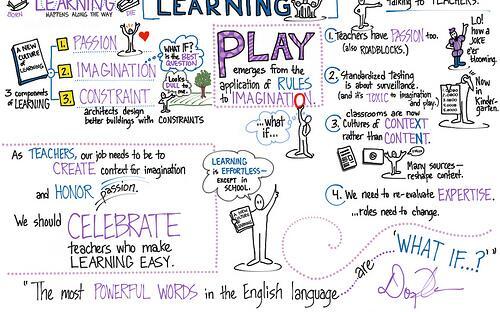 LEARNING
BORN
HAPPENS ALONG THE WAY
DIE
LEARNING
talking to TEACHERS.
A NEW
CULTURE
of
LEARNING
3 components
of LEARNING
1. PASSION
2. IMAGINATION
3. CONSTRAINT
architects design
better buildings with CONSTRAINTS
WHAT IF?
is the BEST
QUESTION!
Looks
DULL to
me...
PLAY
emerges from the
application of RULES
to IMAGINATION.
...what
if...
1. Teachers have PASSION too.
(also ROADBLOCKS.)
Lo!
how a
Joke
e'er
blooming.
2. Standardized testing
is about surveillance.
(and it's TOXIC to imagination
and play.)
Now
in
Kinder-
garten.
classrooms are now
3. Cultures of CONTEXT
rather than CONTENT.
Many sources—
reshape context.
4. We need to re-evaluate EXPERTISE.
...roles need to change.
As TEACHERS, our job needs to be to
CREATE context for imagination
and HONOR passion.
We should CELEBRATE
teachers who make
LEARNING EASY.
LEARNING
is EFFORTLESS—
EXCEPT IN
SCHOOL.
"The most POWERFUL WORDS in the English language are 'WHAT IF...?'"